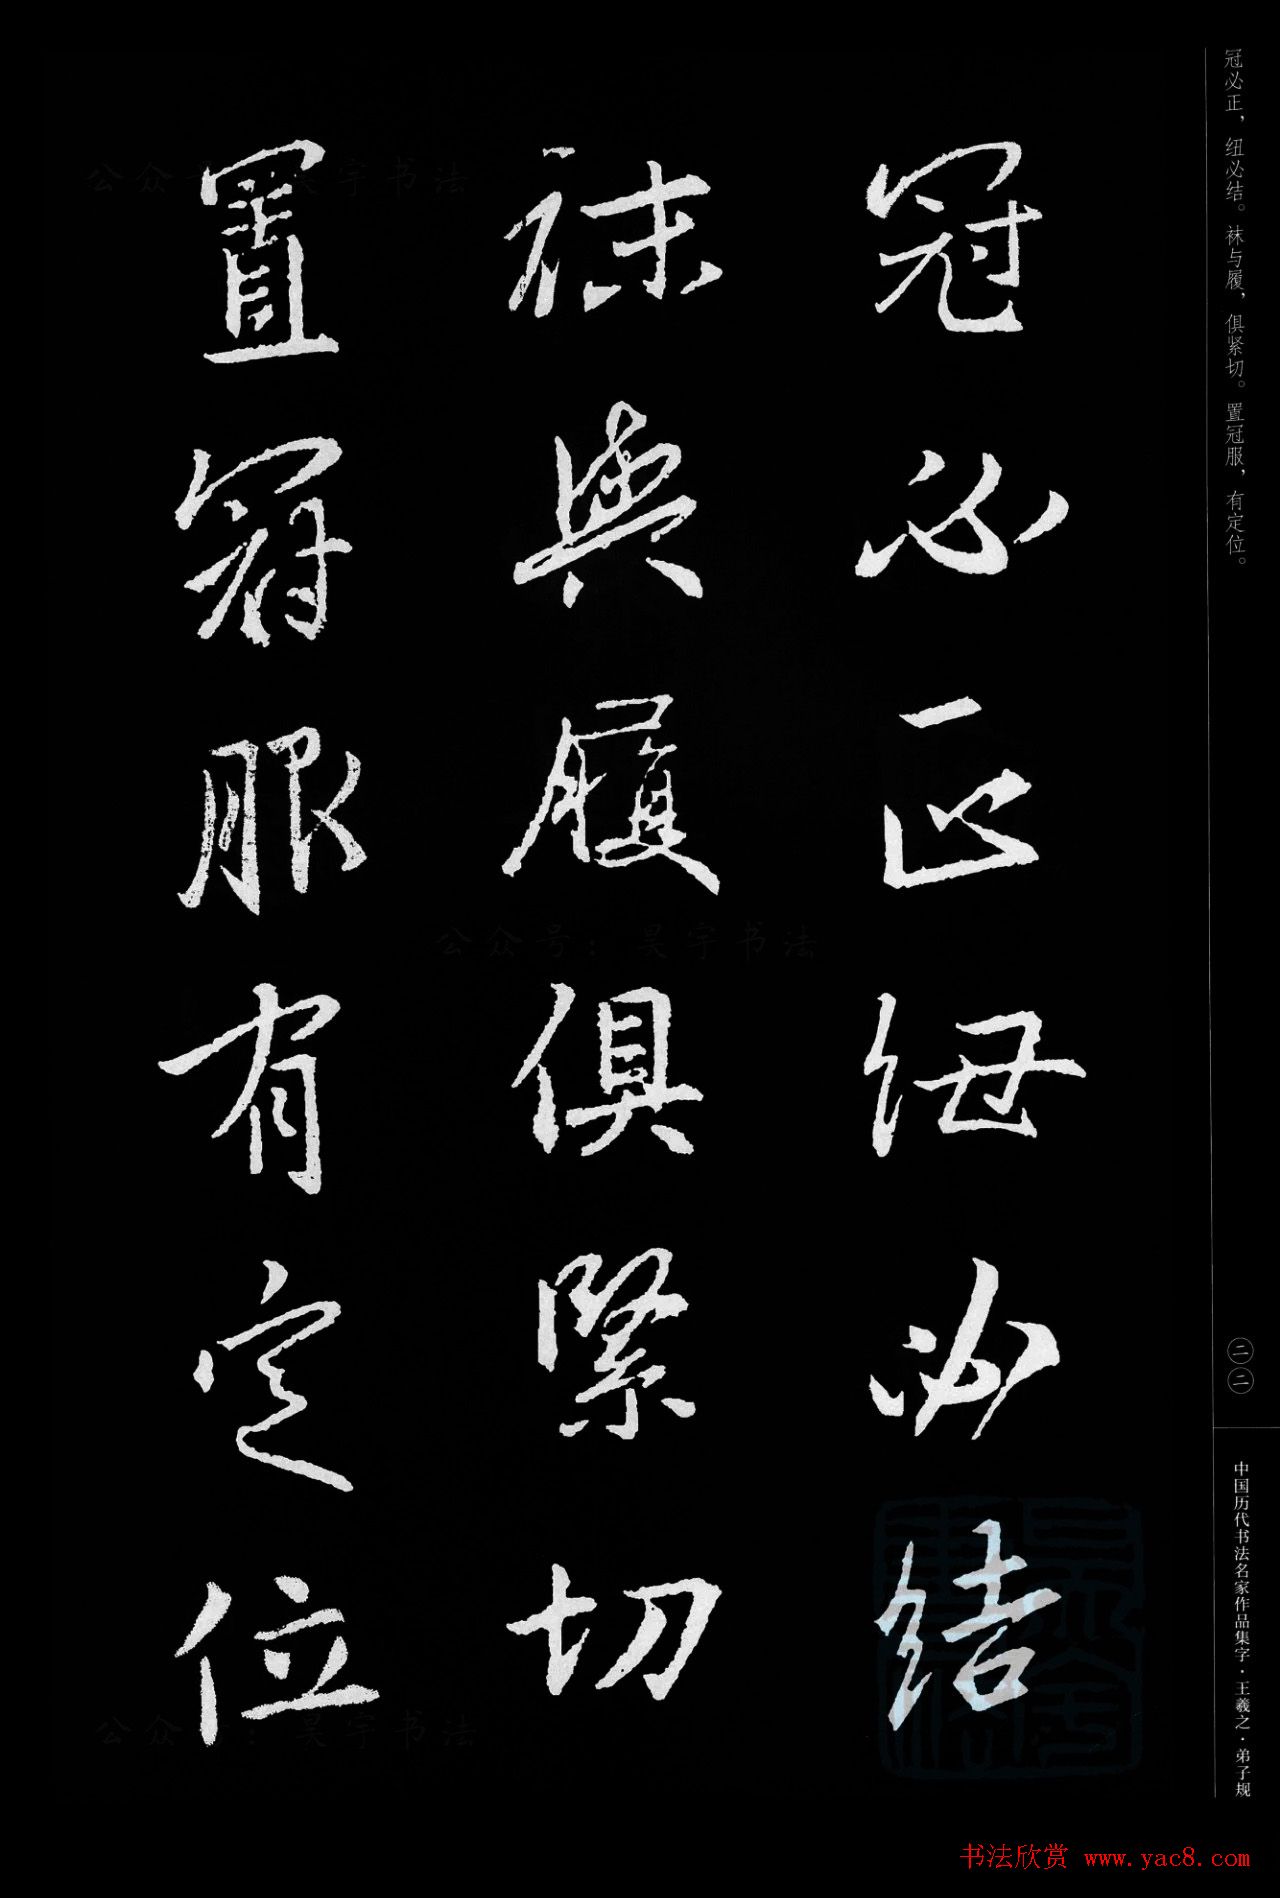 冠必正，纽必结。袜与履，俱紧切。置冠服，有定位。
冠必正纽必結
袜與履俱緊切
置冠服有定位
二二
中国历代书法名家作品集字·王羲之·弟子规
公众号：昊宇书法
公众号：昊宇书法
公众号：昊宇书法
书法欣赏 www.yac8.com